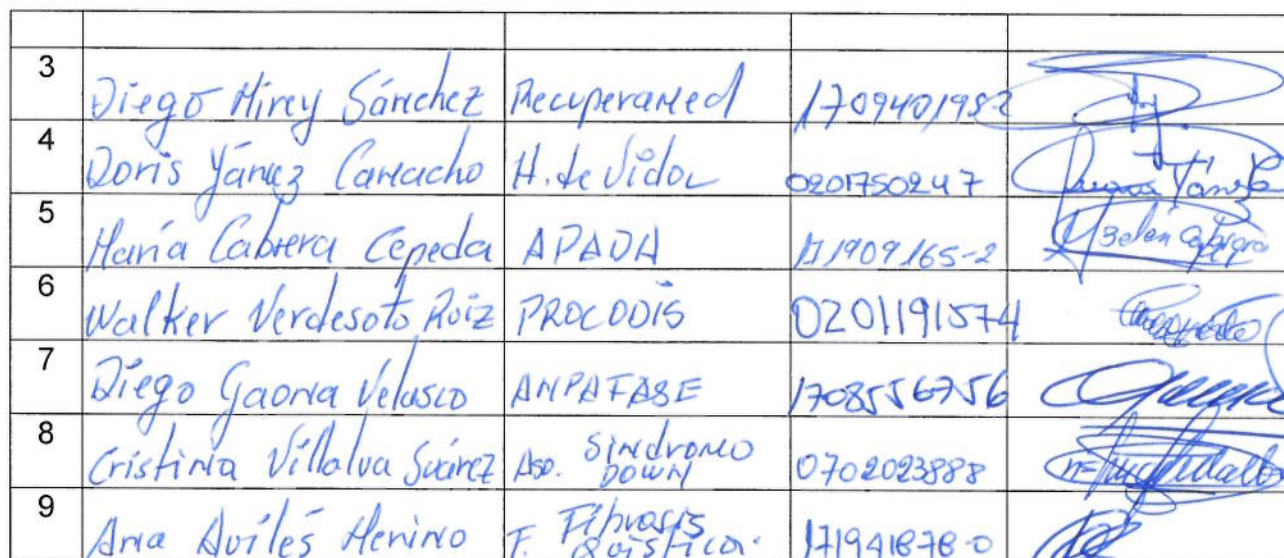 3 Diego Mirey Sánchez Recuperamed 170940198-2
4 Doris Yánez Camacho H. de Vida 0201750247
5 María Cabrera Cepeda APADA 171909165-2 Belén Cabrera
6 Walker Verdesoto Ruiz PROCODIS 0201191574
7 Diego Gaona Velasco ANPAFASE 1708556756
8 Cristina Villalva Suárez Aso. Síndromo DOWN 0702023888
9 Ana Avilés Merino F. Fibrosis Quística. 171941878-0